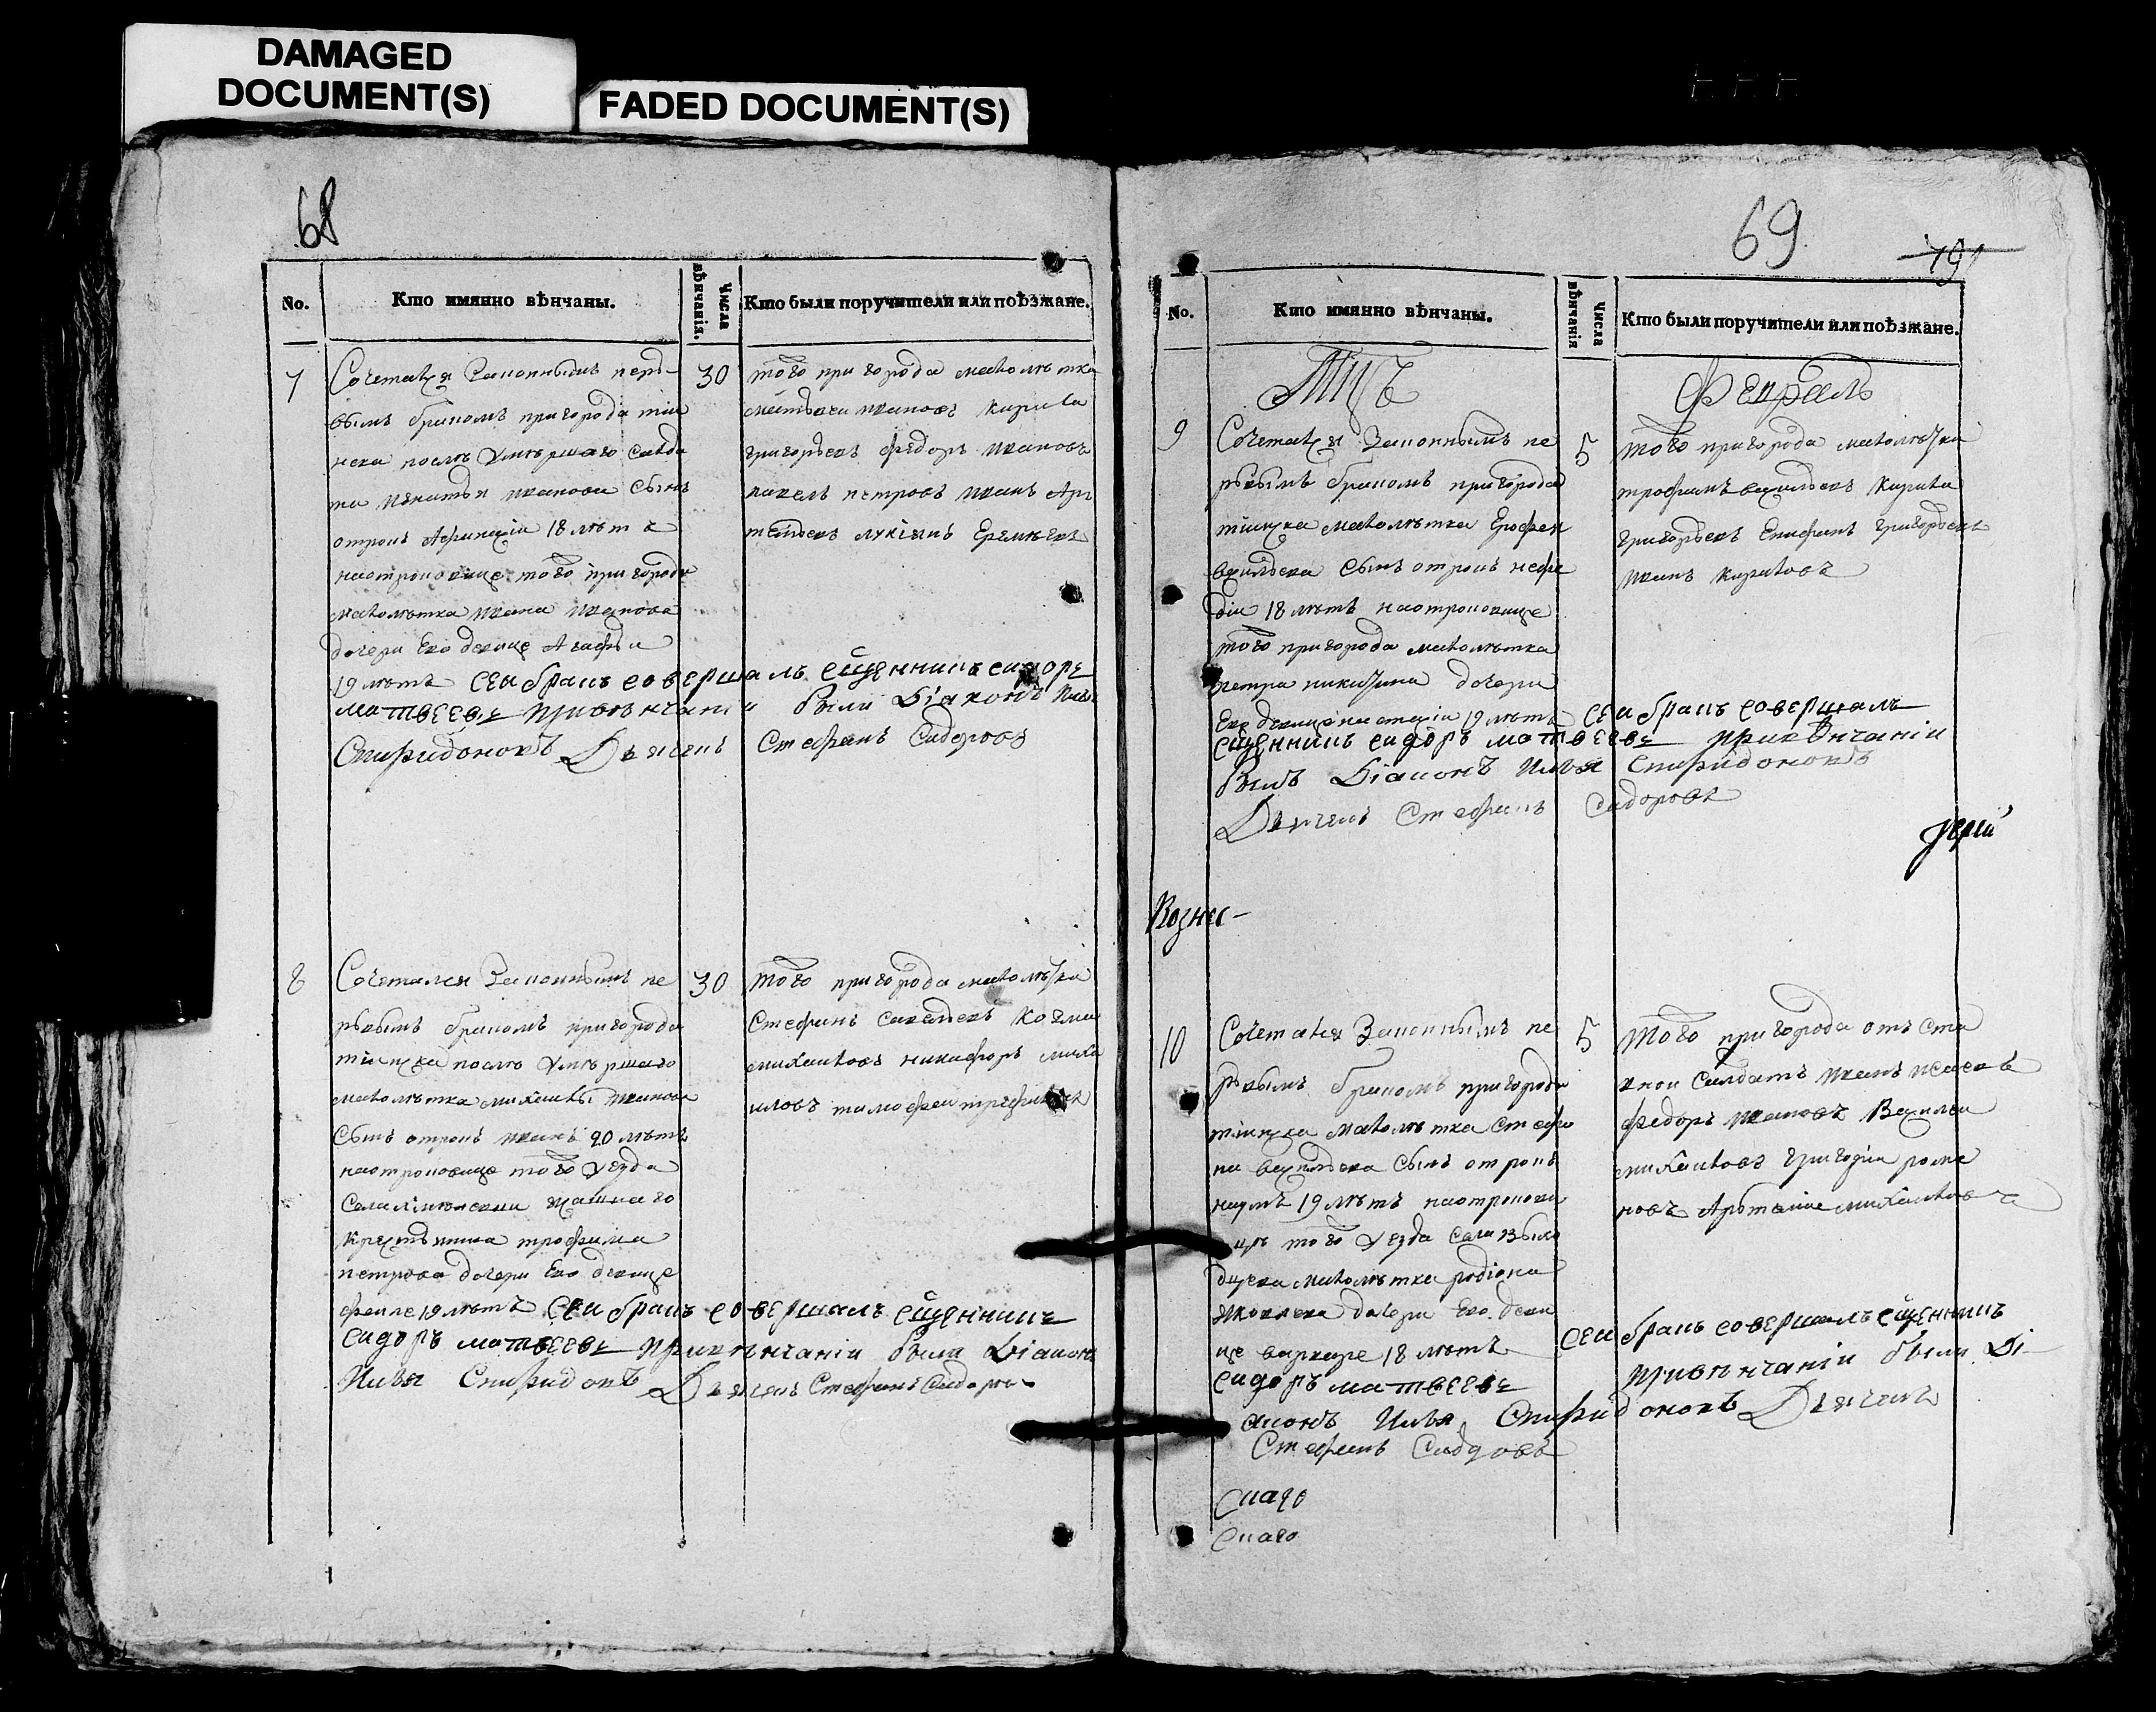 DAMAGED
DOCUMENT(S)
FADED DOCUMENT(S)
68
No.
Кто имянно вѣнчаны.
Числа
вѣнчанія.
Кто были поручители или поѣзжане.
7
Сочетался Законнымъ перь-
вымъ бракомъ пригорода тіи
нска послѣ умѣршаго салда
та Игнатья иванова сынъ
отрокъ 18 лѣтъ
наотроковице того пригорода
малолѣтка ивана иванова
дочери Его девице Агафьи
19 лѣтъ сеи бракъ совершалъ сщенникъ сидоръ
матвеевъ привѣнчаніи были Діаконъ Илья
Спиридоновъ Дьячекъ Стефанъ Сидоровъ
30
того пригорода малолѣтка
ивановъ кирила
григорьевъ федоръ ивановъ
павелъ петровъ иванъ Ар
темьевъ лукіянъ Еремѣевъ
8
Сочетался Законнымъ пе
рвымъ бракомъ пригорода
тіинска послѣ умѣршаго
малолѣтка михаилы иванова
сынъ отрокъ иванъ 20 лѣтъ
наотроковице того уезда
села яшнаго
крестьянина трофима
петрова дочери Его девице
19 лѣтъ сеи бракъ совершалъ сщенникъ
сидоръ матвеевъ привѣнчаніи были Діаконъ
Илья Спиридоновъ Дьячекъ Стефанъ Сидоровъ
30
того пригорода малолѣтка
Стефанъ савельевъ козма
михаиловъ никифоръ миха
иловъ тимофеи трефиловъ
69
191
No.
Кто имянно вѣнчаны.
Числа
вѣнчанія
Кто были поручители или поѣзжане.
Мцъ
Февраль
9
Сочетался Законнымъ пе
рвымъ бракомъ пригорода
тіинска малолѣтка Ерофея
васильева сынъ отрокъ нефе
діи 18 лѣтъ наотроковице
того пригорода малолѣтка
петра никитина дочери
Его девице наталіи 19 лѣтъ сеи бракъ совершалъ
сщенникъ сидоръ матвеевъ привѣнчаніи
былъ Діаконъ Илья Спиридоновъ
Дьячекъ Стефанъ Сидоровъ
5
того пригорода малолѣтка
трофимъ васильевъ кирила
григорьевъ Епифанъ григорьевъ
иванъ кириловъ
Іерей
Вознес-
10
Сочетался Законнымъ пе
рвымъ бракомъ пригорода
тіинска малолѣтка Стефа
на васильева сынъ отрокъ
наумъ 19 лѣтъ наотрокови
цѣ того уезда села
малолѣтка родіона
яковлева дочери Его деви
це варваре 18 лѣтъ сеи бракъ совершалъ сщенникъ
сидоръ матвеевъ привѣнчаніи были Ді-
аконъ Илья Спиридоновъ Дьячекъ
Стефанъ Сидоровъ
5
того пригорода отъ ста
внои салдатъ иванъ исаевъ
федоръ ивановъ Василеи
михаиловъ григореи рома
новъ Артемие михаиловъ